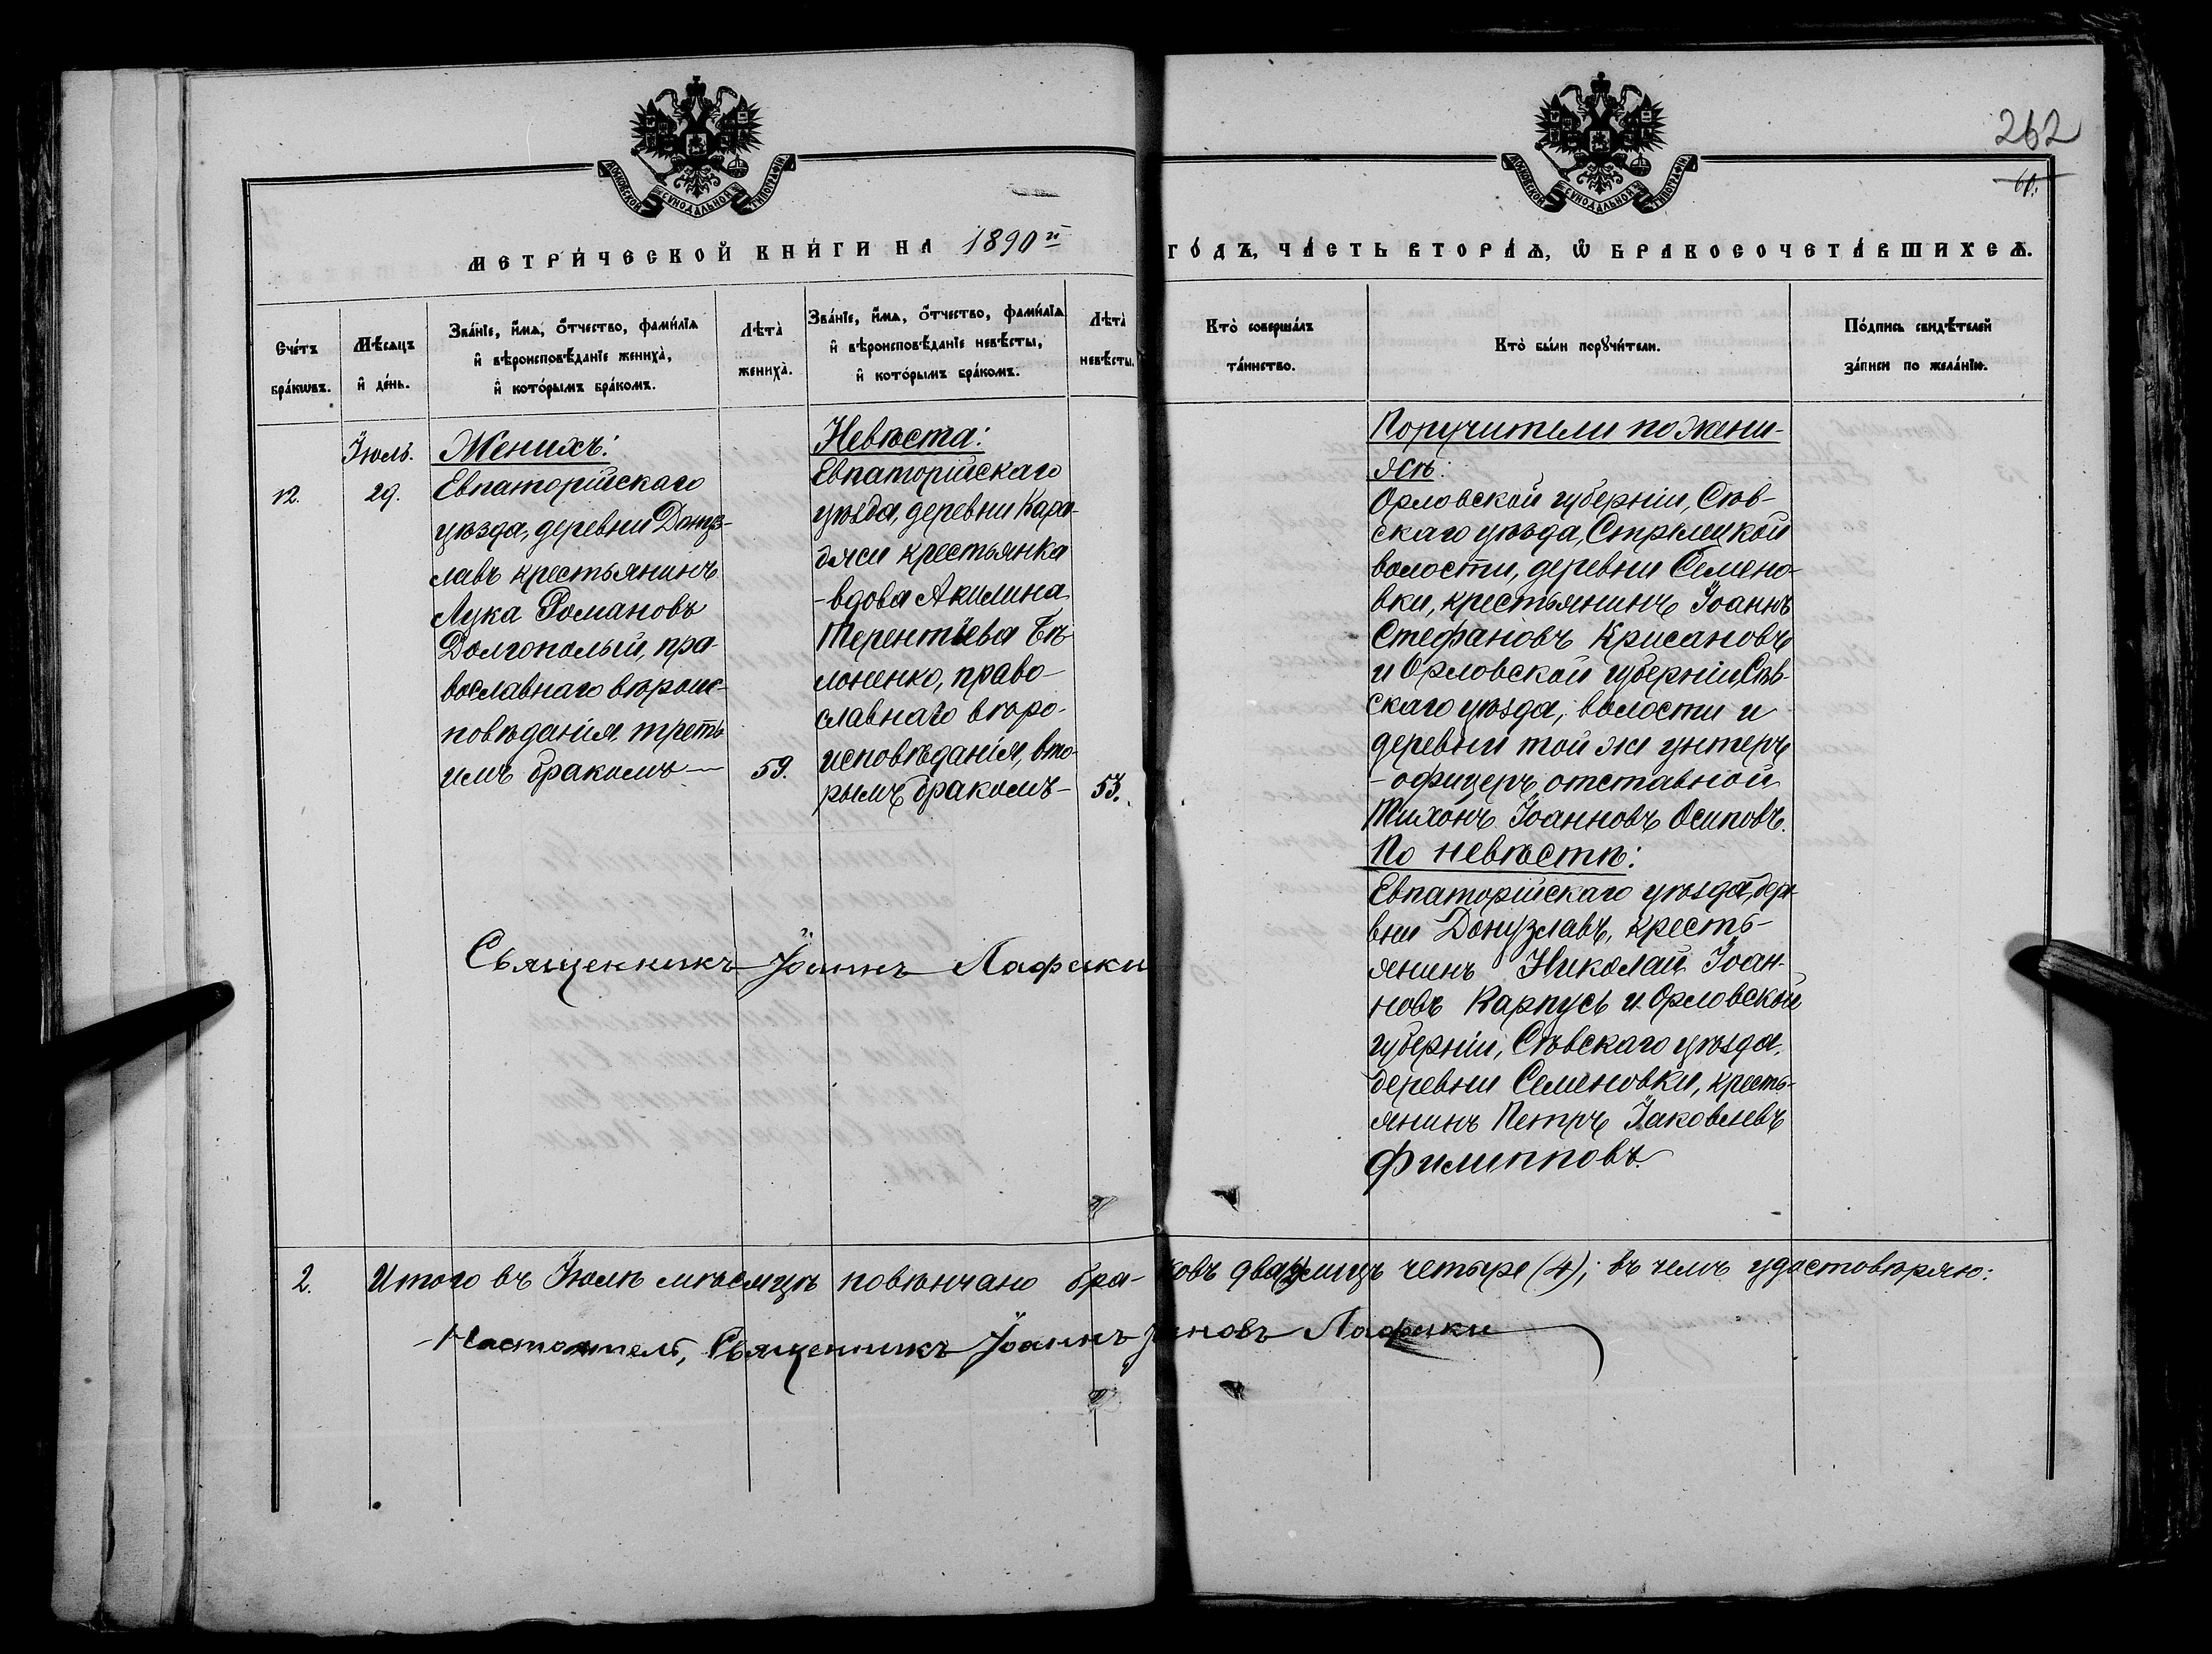 262
МОСКОВСКОЙ СѴНОДАЛЬНОЙ ТИПОГРАФІИ
МОСКОВСКОЙ СѴНОДАЛЬНОЙ ТИПОГРАФІИ
МЕТРИ́ЧЕСКОЙ КНИ́ГИ НА 1890й ГО́ДЪ, ЧА́СТЬ ВТОРА́Ѧ, Ѡ БРАКОСОЧЕТА́ВШИХСѦ.
Сче́тъ
бра́кѡвъ.
Мѣ́сѧцъ
и҆ де́нь.
Зва́нїе, и҆́мѧ, ѻ҆́тчество, фами́лїѧ
и҆ вѣроисповѣ́данїе жениха̀,
и҆ кото́рымъ бра́комъ.
Лѣта̀
жениха̀.
Зва́нїе, и҆́мѧ, ѻ҆́тчество, фами́лїѧ
и҆ вѣроисповѣ́данїе невѣ́сты,
и҆ кото́рымъ бра́комъ.
Лѣта̀
невѣ́сты.
Кто̀ соверша́лъ
та́инство.
Кто̀ бы́ли порꙋчи́тели.
По́дпись свидѣ́телей
за́писи по жела́нїю.
12.
Іюль.
29.
Женихъ:
Евпаторійскаго
уѣзда, деревни Донуз-
лавъ крестьянинъ
Лука Романовъ
Долгополый, пра-
вославнаго вѣроис-
повѣданія, треть
имъ бракомъ —
59.
Невѣста:
Евпаторійскаго
уѣзда, деревни Кара-
бяси крестьянка
-вдова Акилина
Терентіева Бѣ-
лоненко, право-
славнаго вѣро-
исповѣданія, вто-
рымъ бракомъ —
53.
Поручители по жени-
хѣ:
Орловской губерніи, Сѣв-
скаго уѣзда, Стрѣлецкой
волости, деревни Семено-
вки, крестьянинъ Іоаннъ
Стефановъ Крисановъ
и Орловской губерніи, Сѣв-
скаго уѣзда, волости и
деревни той же унтеръ
-офицеръ отставной
Тихонъ Іоанновъ Осиповъ.
По невѣстѣ:
Евпаторійскаго уѣзда, дере-
вни Донузлавъ, кресть-
янинъ Николай Іоан-
новъ Карпусь и Орловской
губерніи, Сѣвскаго уѣзда,
деревни Семеновки, кресть-
янинъ Петръ Іаковлевъ
Филипповъ.
Священникъ Іоаннъ Лафаки
2. Итого въ Іюлѣ мѣсяцѣ повѣнчано бра-ковъ два (2) лицъ четыре (4); въ чемъ удостовѣряю:
Настоятель, Священникъ Іоаннъ Лафаки